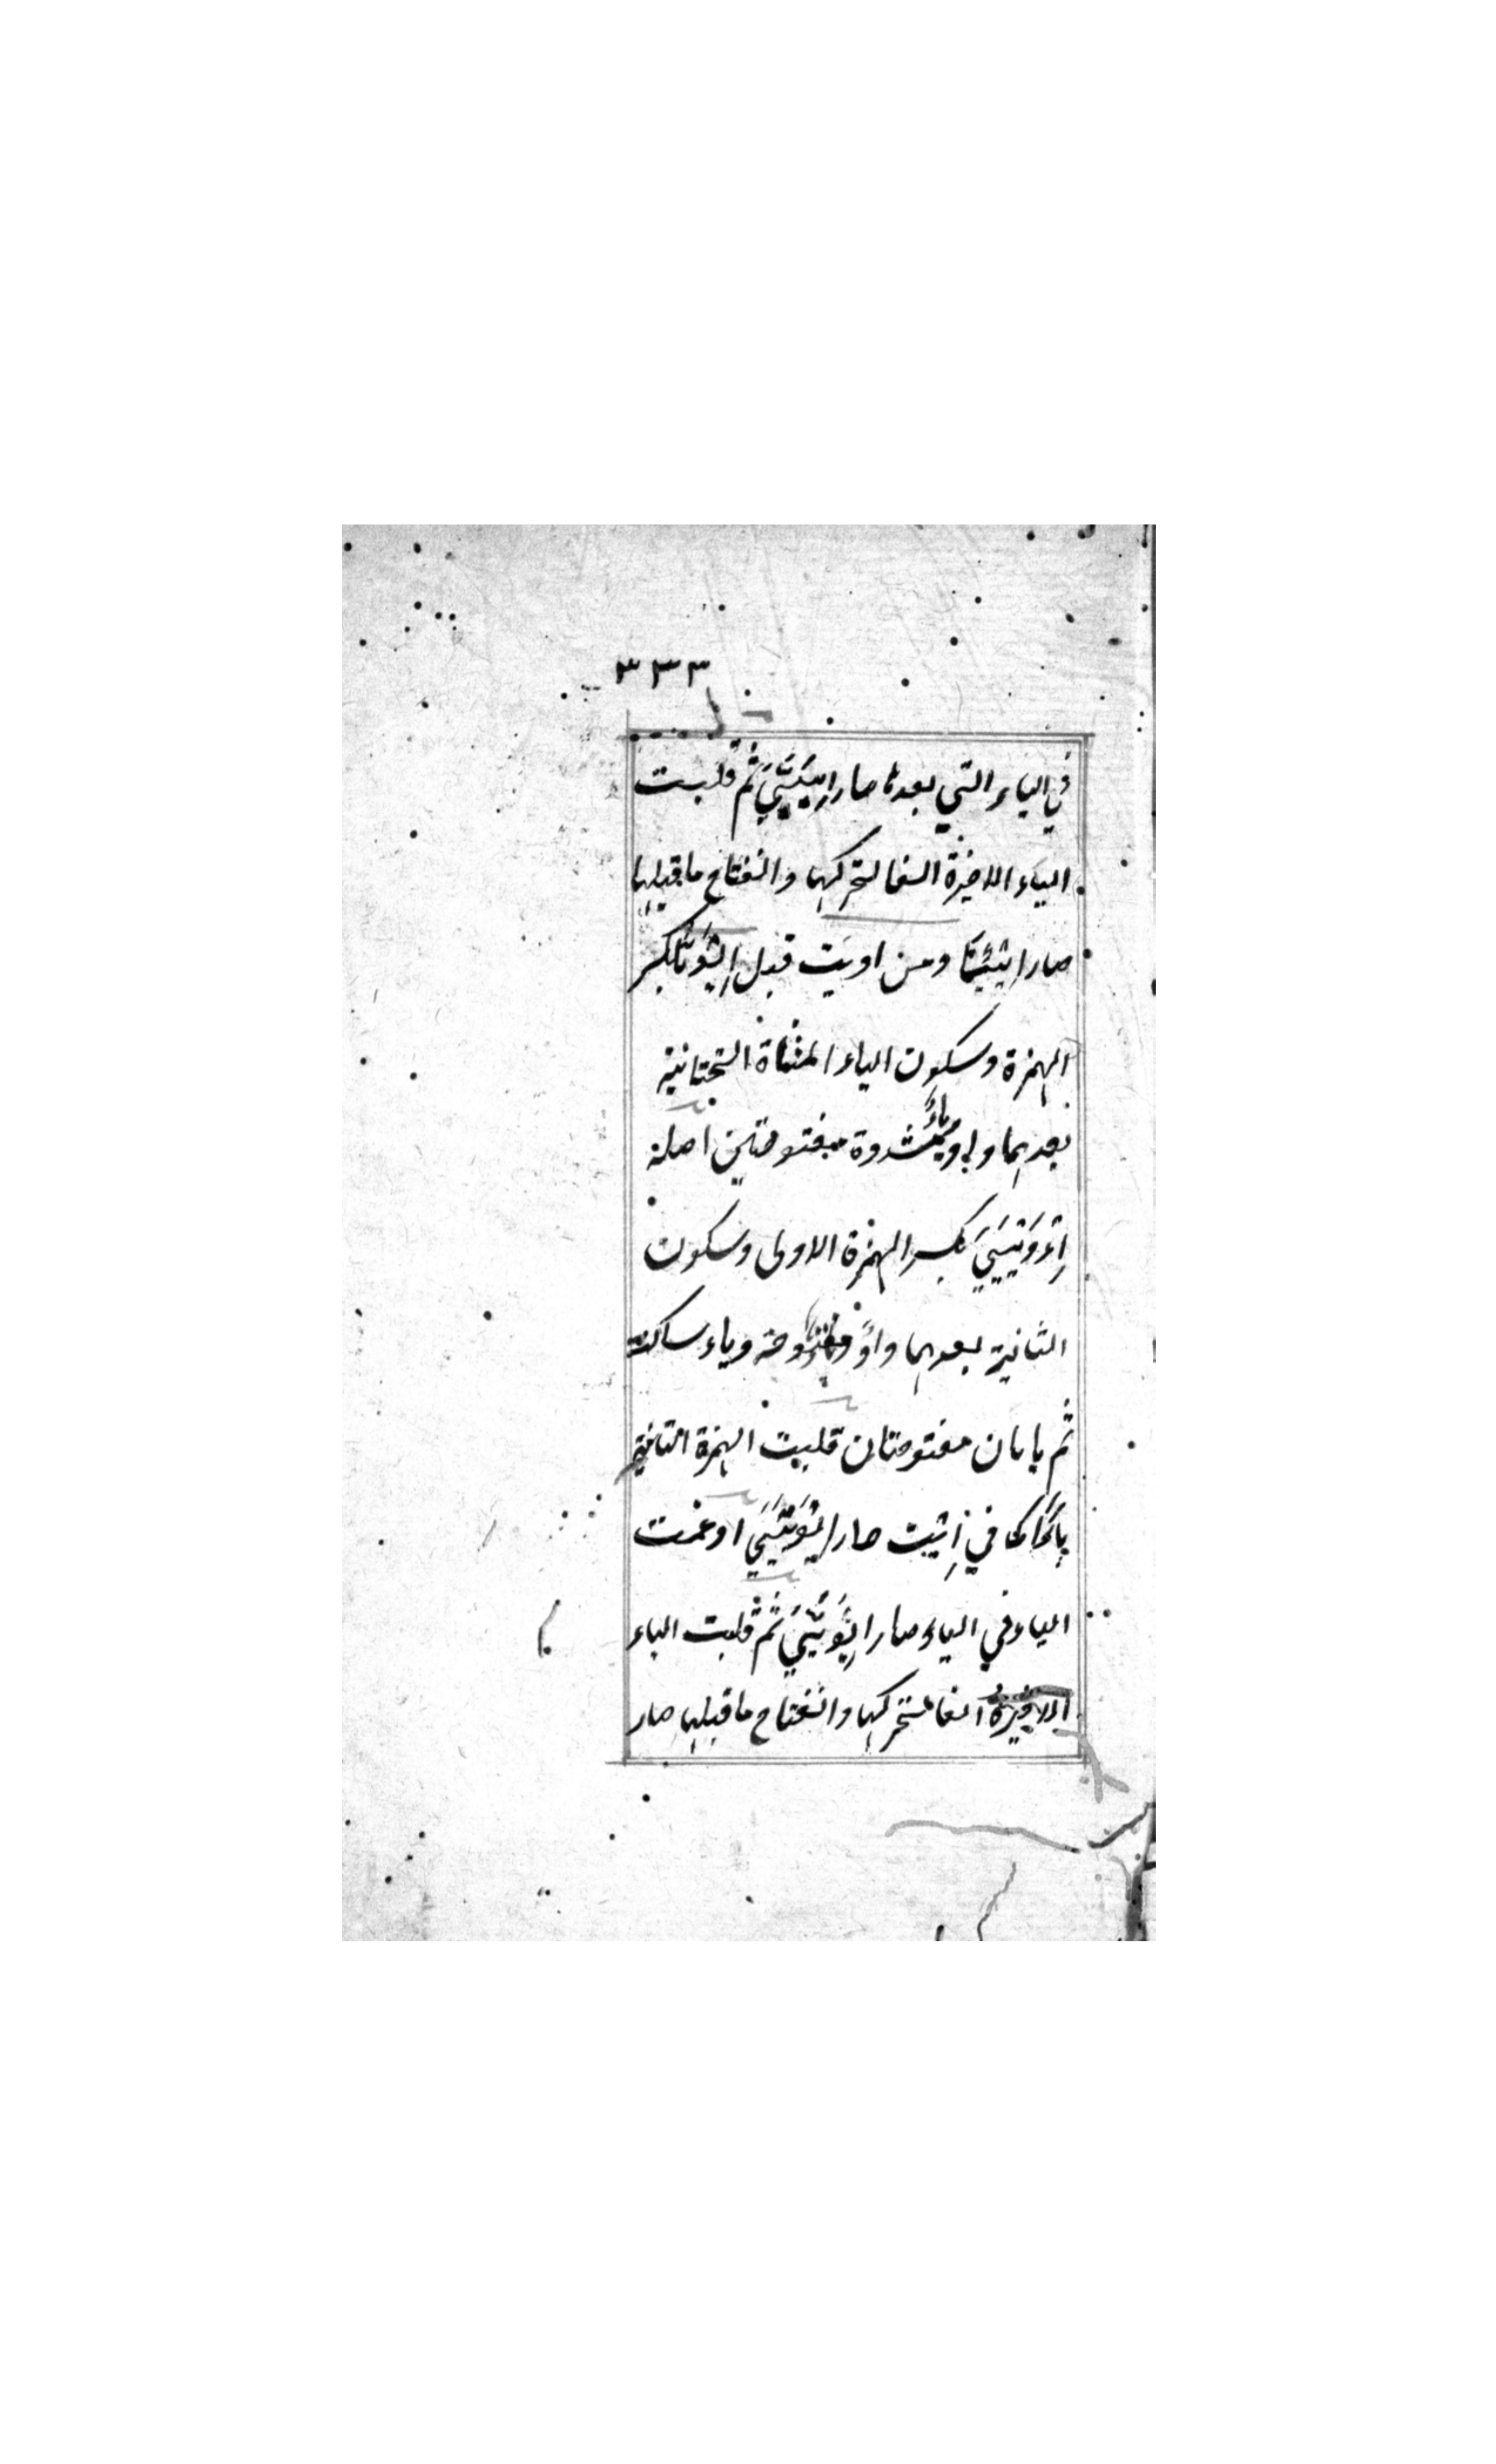 ٣٣٣
في الياء التي بعدها صار اِيْيَيَّيَ ثم قلبت
الياء الاخيرة الفا لتحركها وانفتاح ما قبلها
صار ومن اويت قبل اِيْوَيّا بكسر
الهمزة وسكون الياء المثناة التحتانية
بعدهما واو وياء مشددة مفتوحتين اصله
اِئْوَيْيَيَ بكسر الهمزة الاولى وسكون
الثانية بعدهما واو مفتوحة وياء ساكنة
ثم ياءان مفتوحتان قلبت الهمزة الثانية
ياءً كما في صار اِيْوَيْيَيَ ادغمت
الياء في الياء صار اِيْوَيَّيَ ثم قلبت الياء
الاخيرة الفا لتحركها وانفتاح ما قبلها صار